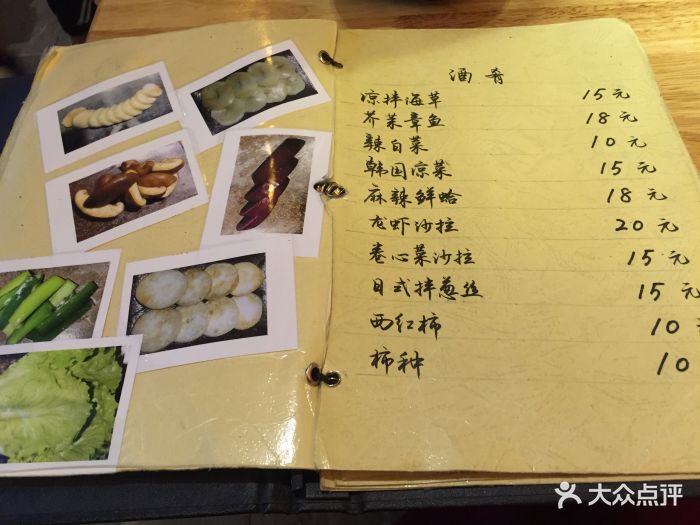 酒肴
凉拌海草 15元
芥菜章鱼 18元
辣白菜 10元
韩国凉菜 15元
麻辣鲜蛤 18元
龙虾沙拉 20元
卷心菜沙拉 15元
日式拌葱丝 15元
西红柿 10
柿种 10
大众点评